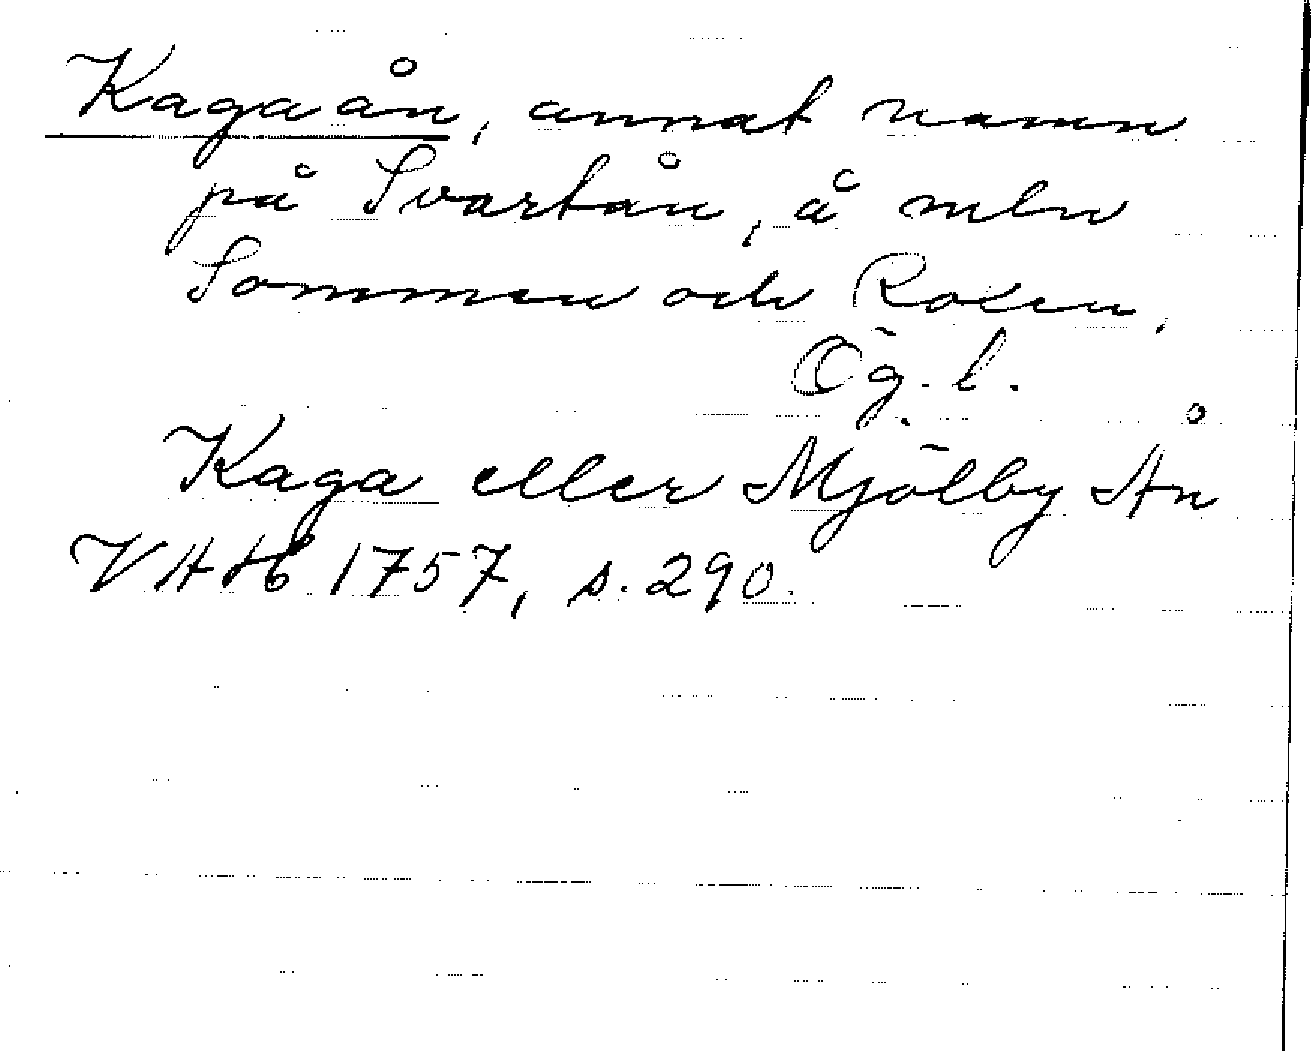 Kagaån, annat namn
på Svartån, å mln
Sommen och Roxen,
Ög. l.
Kaga eller Mjölby Ån
VHH 1757, s. 290.